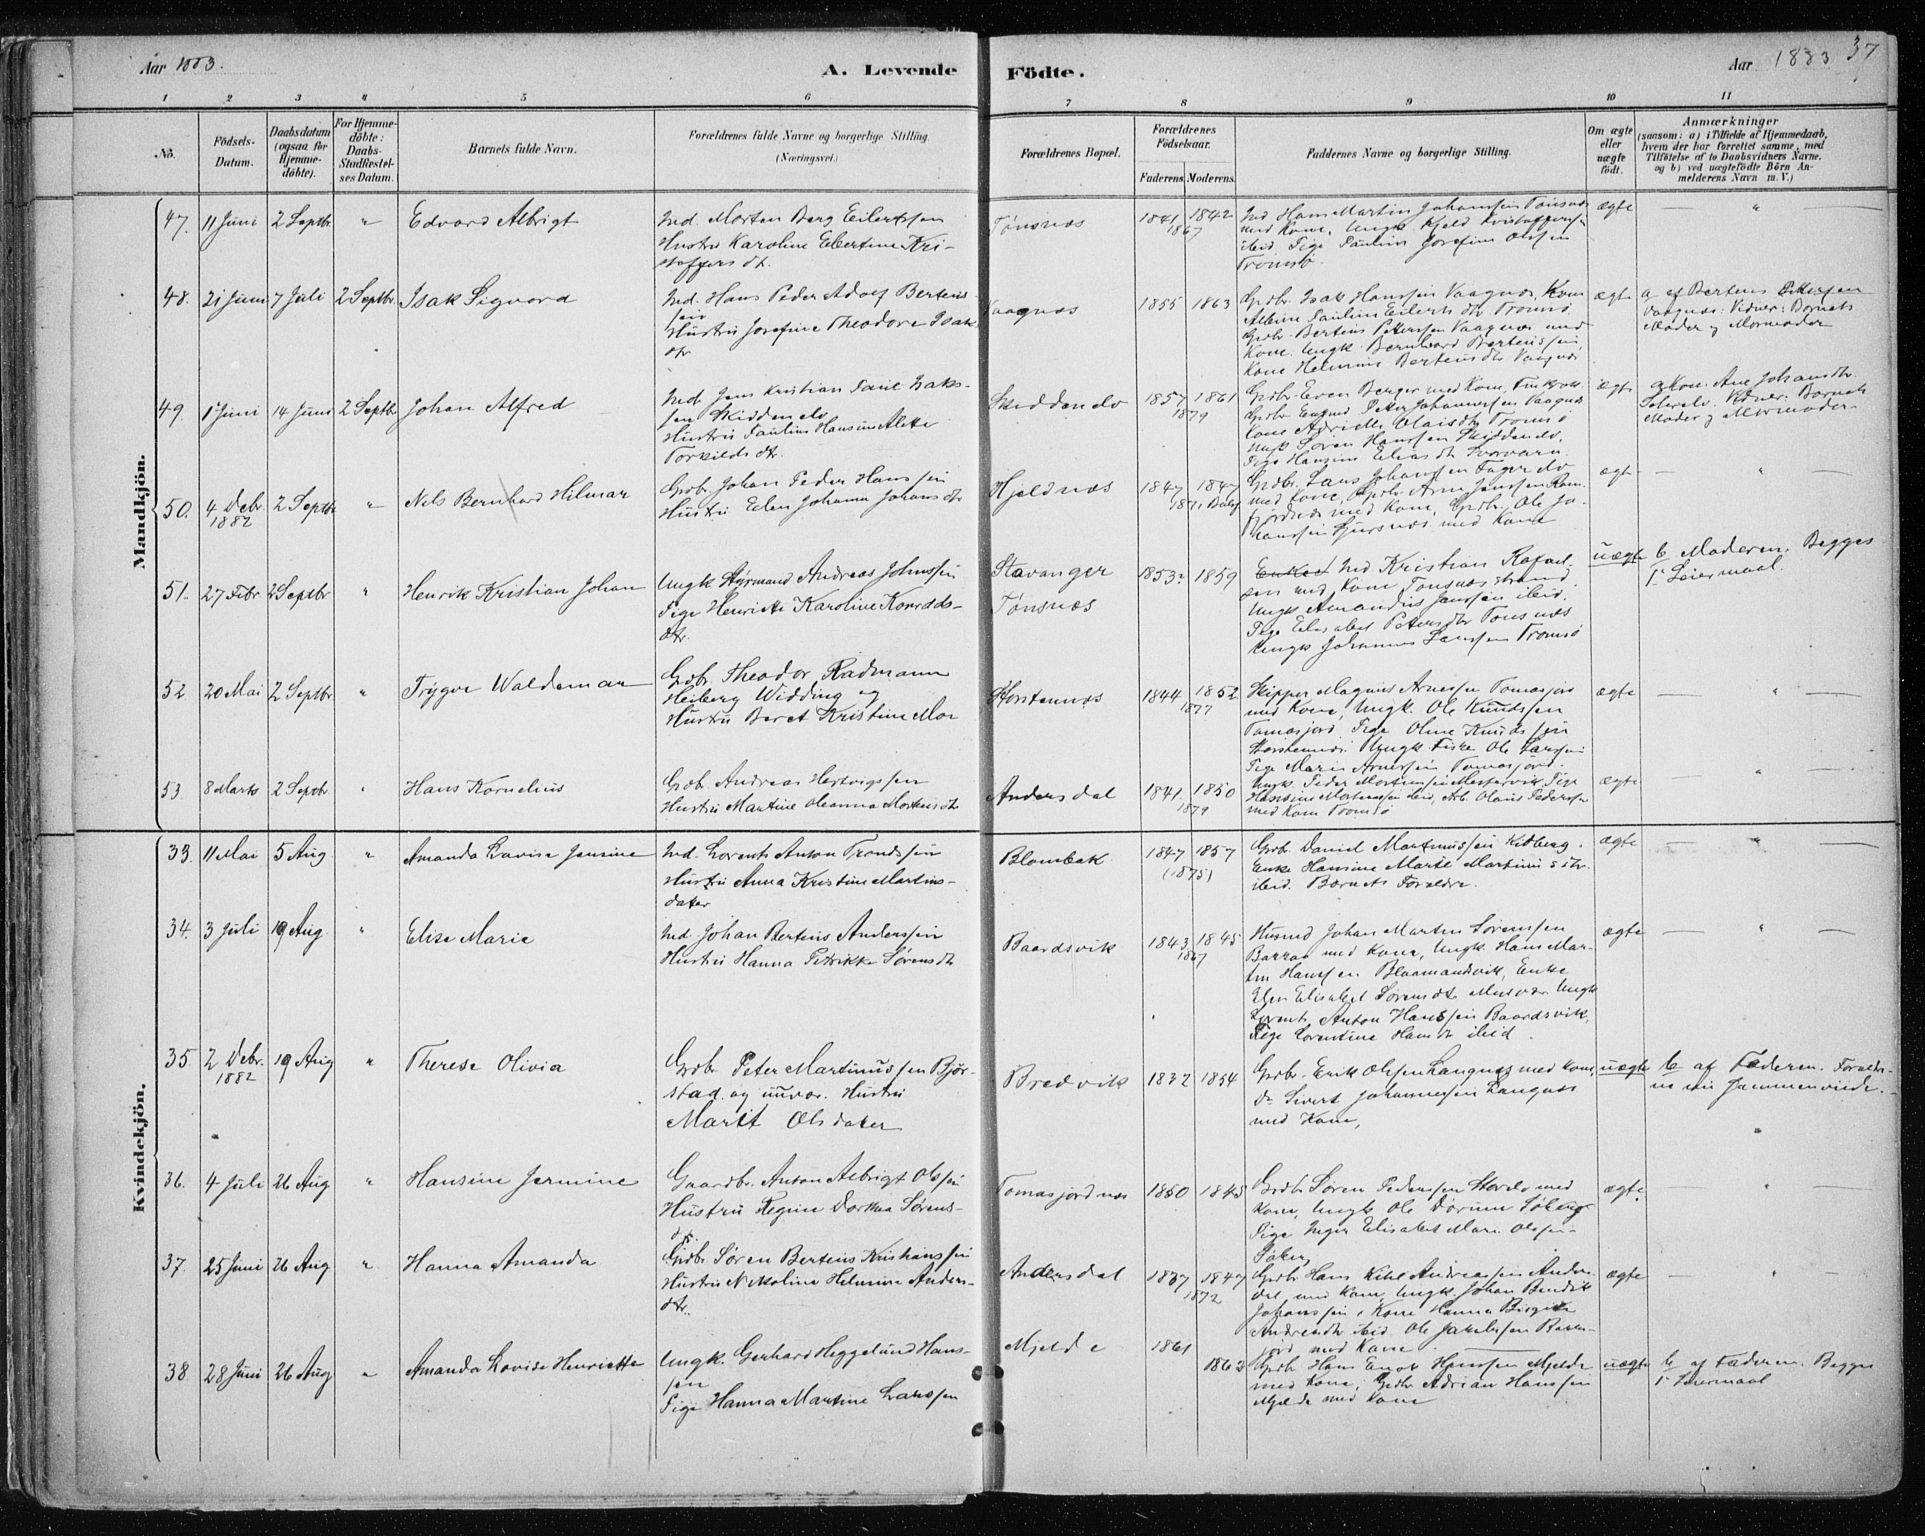 Aar 1883.
A. Levende
Födte.
Aar 1883
37
1 2 3 4 5 6 7 8 9 10 11
No.
Födsels-Datum.
Daabsdatum (ogsaa for Hjemme-döbte).
For Hjemme-döbte: Daabs-Stadfæstel-ses Datum.
Barnets fulde Navn.
Forældrenes fulde Navne og borgerlige Stilling.
(Næringsvei.)
Forældrenes Bopæl.
Forældrenes Födselsaar.
Faderens. Moderens.
Faddernes Navne og borgerlige Stilling.
Om ægte eller uægte födt.
Anmærkninger
(saasom: a) i Tilfælde af Hjemmedaab,
hvem der har forrettet samme, med
Tilföielse af to Daabsvidners Navne,
og b) ved uægtefödte Börn An-
melderens Navn m. V.)
Mandkjön.
47. 11 Juni 2 Septbr. " Edvard Albrigt
Ind. Morten Berg Eilertssen
Hustru Karoline Elbertine Kri-
stoffersdt.
Tønsnæs 1841 1842
1867
Ind Hans Martin Johanssen Tønsnæs
med Kone, Ungk Kjeld Kristoffersen
ibid Pige Pauline Josefine Olssen
Tromsø.
ægte — " —
48. 21 Juni 7 Juli 2 Septbr. Isak Sigvard
Ind. Hans Peder Adolf Bertens-
sen
Hustru Josefine Theodora Isaks
dtr
Vaagnæs 1855 1863
Grdbr. Isak Hanssen Vaagnæs, Kone
Albine Pauline Eilerts dtr Tromsø
Grdbr. Bertens Pettersen Vaagnæs med
Kone. Ungk. Bernhard Bertenssen,
Kone Helmine Bertens dtr Vaagnæs
ægte
a af Bertens Pettersen
Vaagnæs. Vidner: Barnets
Moder og Mormoder
49. 1 Juni 14 Juni 2 Septbr Johan Alfred
Ind. Jens Kristian Paul Isaks-
sen Skiddenelv
Hustru Pauline Hansine Alette
Torkildsdtr.
Skiddenelv 1857 1861
1879
Grdbr. Even Berger med Kone,
Peter Johannessen Vaagnæs
Kone Tromsø
Ungk Søren Hanssen Skiddenelv,
Pige Hansine Elias dtr
ægte
a Kone Ane Johansdtr.
Vidner: Barnets
Moder og Mormoder
50. 4 Debr. 1882 2 Septbr " Nils Bernhard Hilmar
Grdbr. Johan Peder Hanssen
Hustru Elen Johanna Johans dtr
Hjeldnæs 1847 1847
1871
Grdbr. Lars Johanssen Fagerelv
med Kone, Grdbr. Arne Jenssen Ram-
fjordnæs med Kone, Grdbr. Ole Jo-
hanssen med Kone
ægte — " —
51. 27 Febr 2 Septbr " Henrik Kristian Johan
Ungk Styrmand Andreas Johnssen
Pige Henriette Karoline Konrads-
dtr.
Stavanger
Tønsnæs
1853? 1859
Enken Ind Kristian Rafael-
sen med Kone Tønsnæsstrand.
Ungk Amandus Janssen ibid.
Pige Elisabet Peters dtr Tønsnæs
Ungk Johannes Larssen Tromsø
uægte
b Moderen. Begges
1 Leiermaal.
52 20 Mai 2 Septbr " Trygve Waldemar
Grdbr. Theodor Radmann
Heiberg Widding og
Hustru Beret Kristine Moe
Storstennæs 1844 1852
1877
Skipper Magnus Arnessen Tomasjord
med Kone, Ungk. Ole Knudssen
Tomasjord, Pige Oline Knudssen
Storstennæs. Ungk. Fisker Ole Larssen
Pige Marie Arnessen Tomasjord.
ægte — " —
53. 8 Marts 2 Septbr " Hans Kornelius
Grdb Andreas Hertvigssen
Hustru Martine Oleanna Mortensdtr
Andersdal 1841 1850
1879
Ungk. Peder Mortenssen Mestervik Pige
Hansine Mortenssen ibid, Arb. Olaus Pederssen
med Kone Tromsø
ægte — " —
Kvindekjön.
33. 11 Mai 5 Aug " Amanda Lovise Jensine
Ind. Lorents Anton Trondssen
Hustru Anna Kristine Martins-
datter
Blombak 1847 1857
(1875)
Grdb. Daniel Martinussen Kilberg.
Enke Hansine Marie Martinus dtr
ibid. Barnets Forældre.
ægte — " —
34. 3 Juli 19 Aug " Elise Marie
Ind. Johan Bertens Anderssen
Hustru Hanna Petrikke Sørensdtr
Baardsvik 1843 1845
1867
Husmd Johan Martin Sørenssen
med Kone, Ungk. Hans Mar-
tin Hanssen Blaamandsvik, Enke
Elen Elisabet Sørensdtr Musvær Ungk
Lorents Anton Hanssen Baardsvik,
Pige Lorentine Hansdtr ibid.
ægte — " —
35. 2 Debr. 1882 19 Aug " Therese Olivia
Grdbr Peter Martinussen Bjør-
stad og Hustru
Marit Olsdatter
Bredvik 1832 1854
Grdbr. Erik Olssen Langnæs med Kone,
Do Sivert Johannessen Langnæs
med Kone,
uægte
b af Faderen. Forældre-
ne nu sammenviede.
"
36. 4 Juli 26 Aug " Hansine Jermine
Gaardbr. Anton Albrigt Olssen
Hustru Regine Dorthea Sørens-
dtr.
Tomasjordnæs 1850 1845
Grdbr Søren Pederssen Storelv med
Kone, Ungk Ole
Pige Inger Elisabet Marie Olssen
ægte — " —
37. 25 Juni 26 Aug " Hanna Amanda
Grdbr. Søren Bertens Kristianssen
Hustru Nikoline Helmine Anders-
dtr.
Andersdal 1837 1847
1872
Grdbr Hans Kihl Andreassen Anders-
dal, med Kone, Ungk. Johan Bendik
Johanssen, Kone Hanna Birgitte
Andreasdtr ibid. Ole Jakobssen
med Kone.
ægte — " —
38 28 Juni 26 Aug " Amanda Lovise Henriette
Ungk. Gerhard Heggelund Hans-
sen
Pige Hanna Martine Larssen
Mjelde 1861 1863
Grdb Hans Enok Hanssen Mjelde
med Kone, Grdbr Adrian Hanssen
Mjelde med Kone
uægte
b af Faderen. Begges
1 Leiermaal